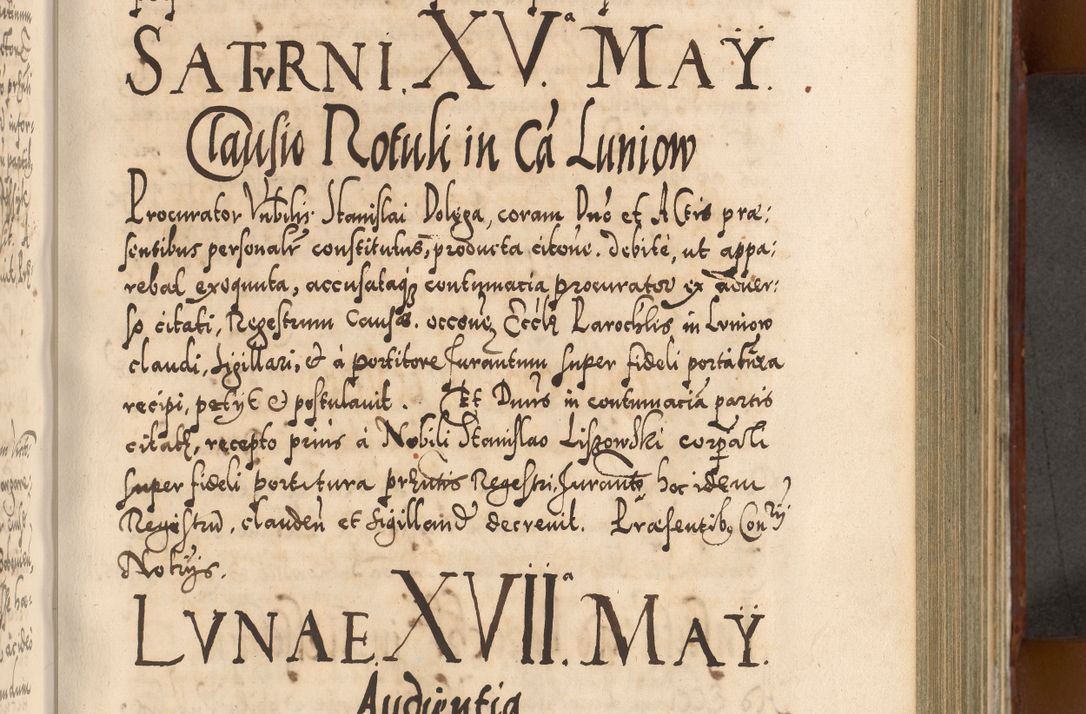 SATVRNI. XV.ª MAŸ.
Clausio Rotuli in Cã Luniow
Procurator Vnbilis Stanislai Dolęga, coram Dnõ et Actis præ:
sentibus personalr constitutus, producta citone. debitè, ut appa:
rebat exequuta, accusataq3 contumacia procurator ex aduer:
so citati, Regestrum Causæ. occone Eccle Parochlis in Luniow
claudi, sigillari, & à portitore Iurantum super fideli portatura
recipi, petyt & postulauit. Et Dnus in contumaciã partis
citatę, recepto prius à Nobili Stanislao Liszowski corpali
super fideli portatura prẽntis Regestri, Iurante, hoc idem
Regestrũ, clauden et sigilland decreuit. Præsentib,
Notrijs.
LVNAE. XVII.ª MAŸ.
Audientia